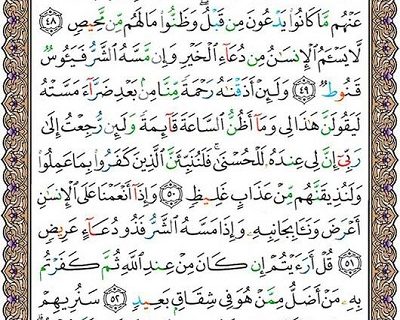 عَنْهُم مَّا كَانُوا۟ يَدْعُونَ مِن قَبْلُ ۖ وَظَنُّوا۟ مَا لَهُم مِّن مَّحِيصٍ ٤٨
لَّا يَسْـَٔمُ ٱلْإِنسَـٰنُ مِن دُعَآءِ ٱلْخَيْرِ وَإِن مَّسَّهُ ٱلشَّرُّ فَيَـُٔوسٌ
قَنُوطٌ ٤٩ وَلَئِنْ أَذَقْنَـٰهُ رَحْمَةً مِّنَّا مِنۢ بَعْدِ ضَرَّآءَ مَسَّتْهُ
لَيَقُولَنَّ هَـٰذَا لِى وَمَآ أَظُنُّ ٱلسَّاعَةَ قَآئِمَةً وَلَئِن رُّجِعْتُ إِلَىٰ
رَبِّىٓ إِنَّ لِى عِندَهُۥ لَلْحُسْنَىٰ ۚ فَلَنُنَبِّئَنَّ ٱلَّذِينَ كَفَرُوا۟ بِمَا عَمِلُوا۟
وَلَنُذِيقَنَّهُم مِّنْ عَذَابٍ غَلِيظٍ ٥٠ وَإِذَآ أَنْعَمْنَا عَلَى ٱلْإِنسَـٰنِ
أَعْرَضَ وَنَـَٔا بِجَانِبِهِۦ وَإِذَا مَسَّهُ ٱلشَّرُّ فَذُو دُعَآءٍ عَرِيضٍ
٥١ قُلْ أَرَءَيْتُمْ إِن كَانَ مِنْ عِندِ ٱللَّهِ ثُمَّ كَفَرْتُم
بِهِۦ مَنْ أَضَلُّ مِمَّنْ هُوَ فِى شِقَاقٍۭ بَعِيدٍ ٥٢ سَنُرِيهِمْ